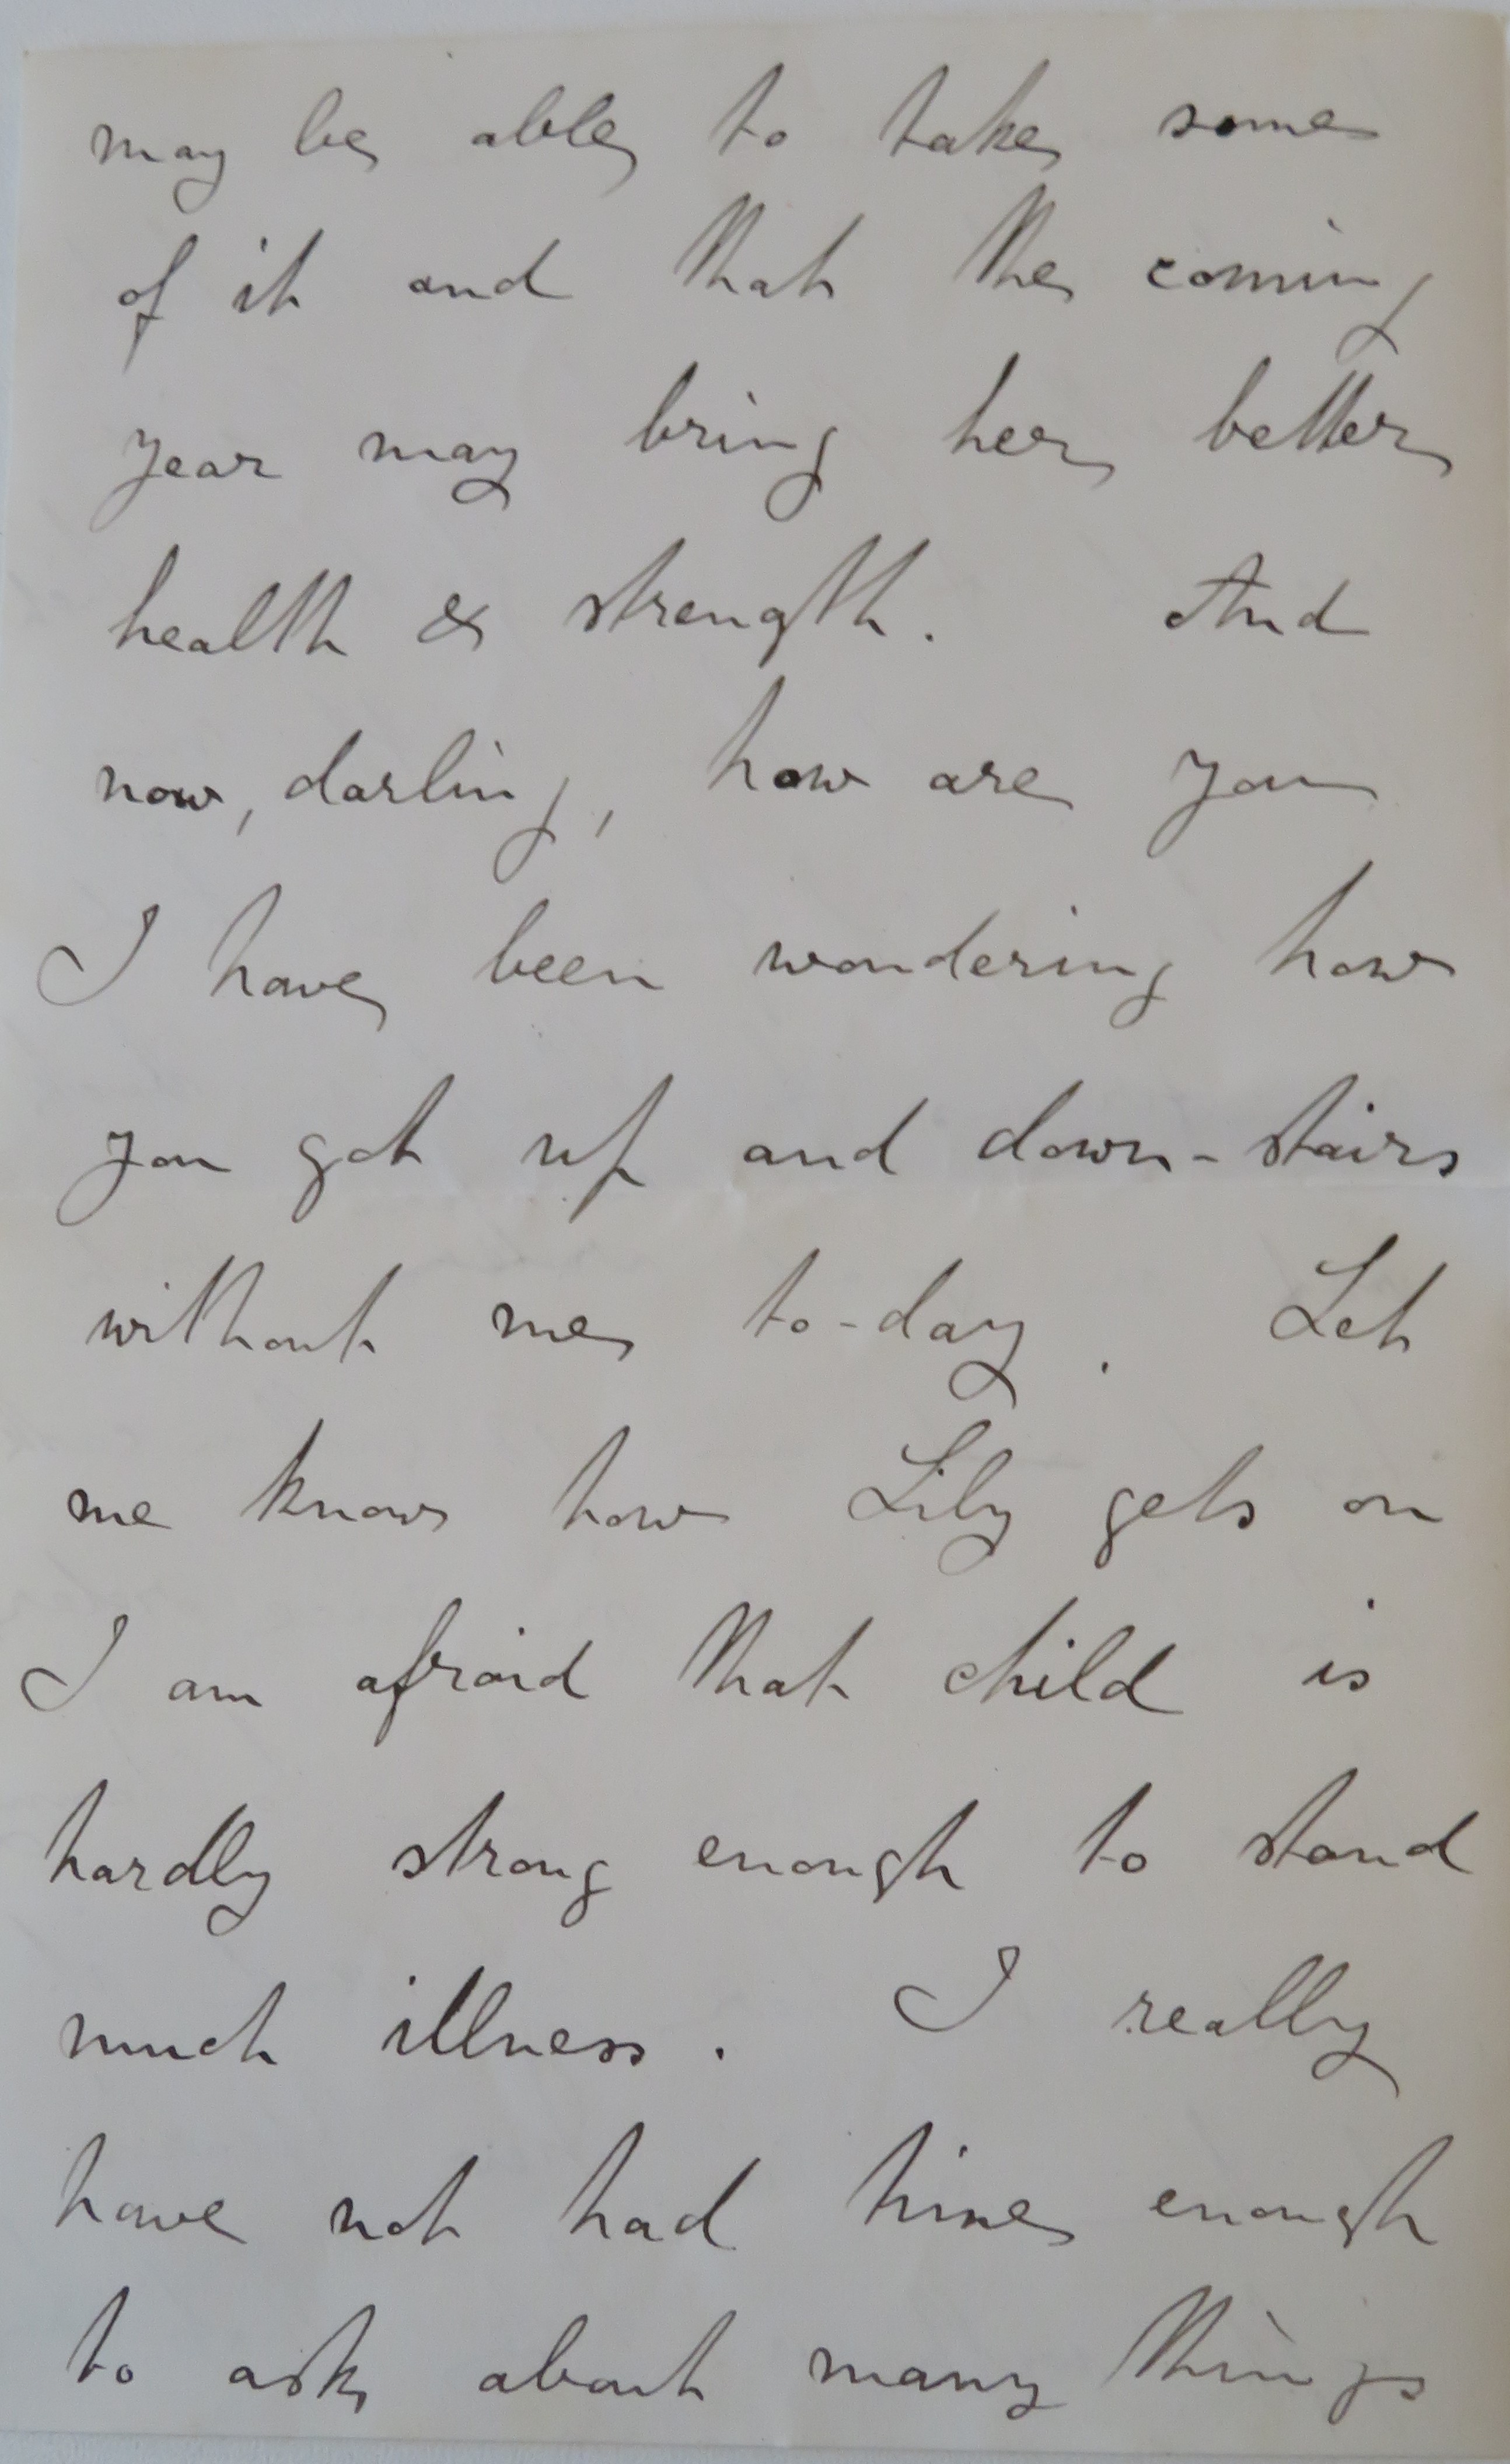 may be able to take some
of it and that the coming
year may bring her better
health & strength. And
now, darling, how are you
I have been wondering how
you got up and down-stairs
without me to-day. Let
me know how Lily gets on
I am afraid that child is
hardly strong enough to stand
much illness. I really
have not had time enough
to ask about many things